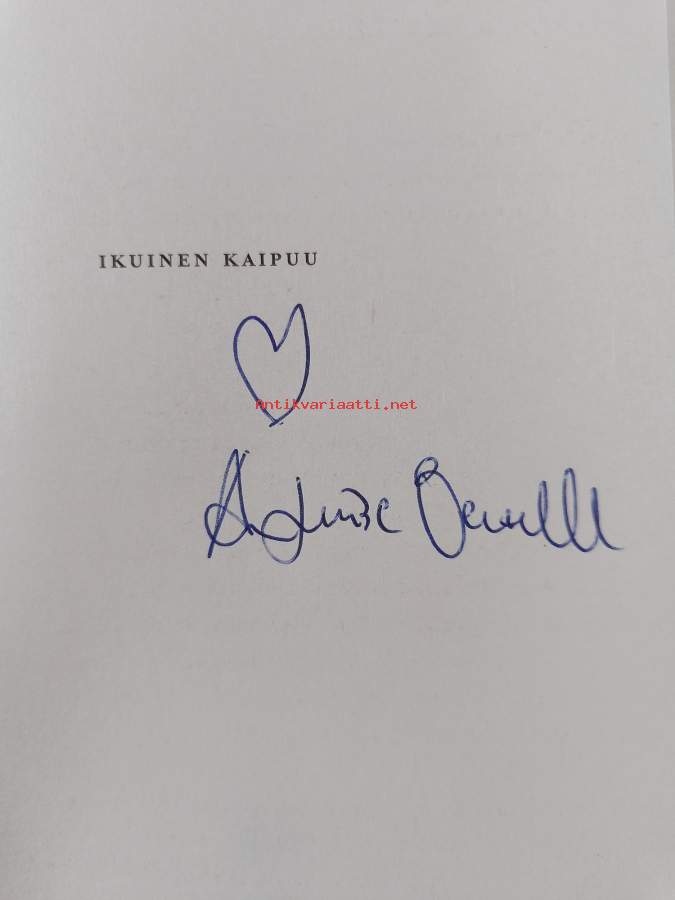 IKUINEN KAIPUU
Antikvariaatti.net
A. Luise